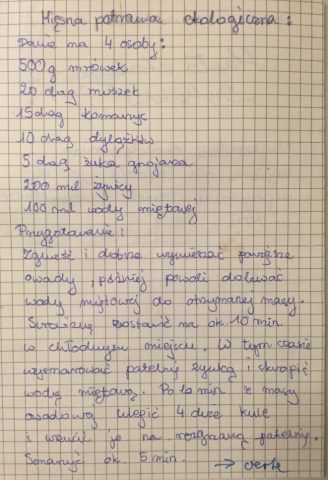 Mięsna potrawa ekologiczna:
Danie na 4 osoby:
500g mrówek
20 dag muszek
15dag komarzyc
10 dag dylążków
5 dag żuka gnojaża
200 mil żywicy
100 mil wody miętowej
Przygotowanie:
Zgnieść i dobrze wymieszać powyższe
owady, później powoli dolewać
wody miętowej do otrzymanej masy.
zostawić na ok. 10 min
w chłodnym miejscu. W tym czasie
wysmarować patelnię żywicą i skropić
wodą miętową. Po 10 min z masy
owadowej ulepić 4 duże kule
i wrzucić je na rozgrzaną patelnię.
Smarzyć ok. 5 min. → verte